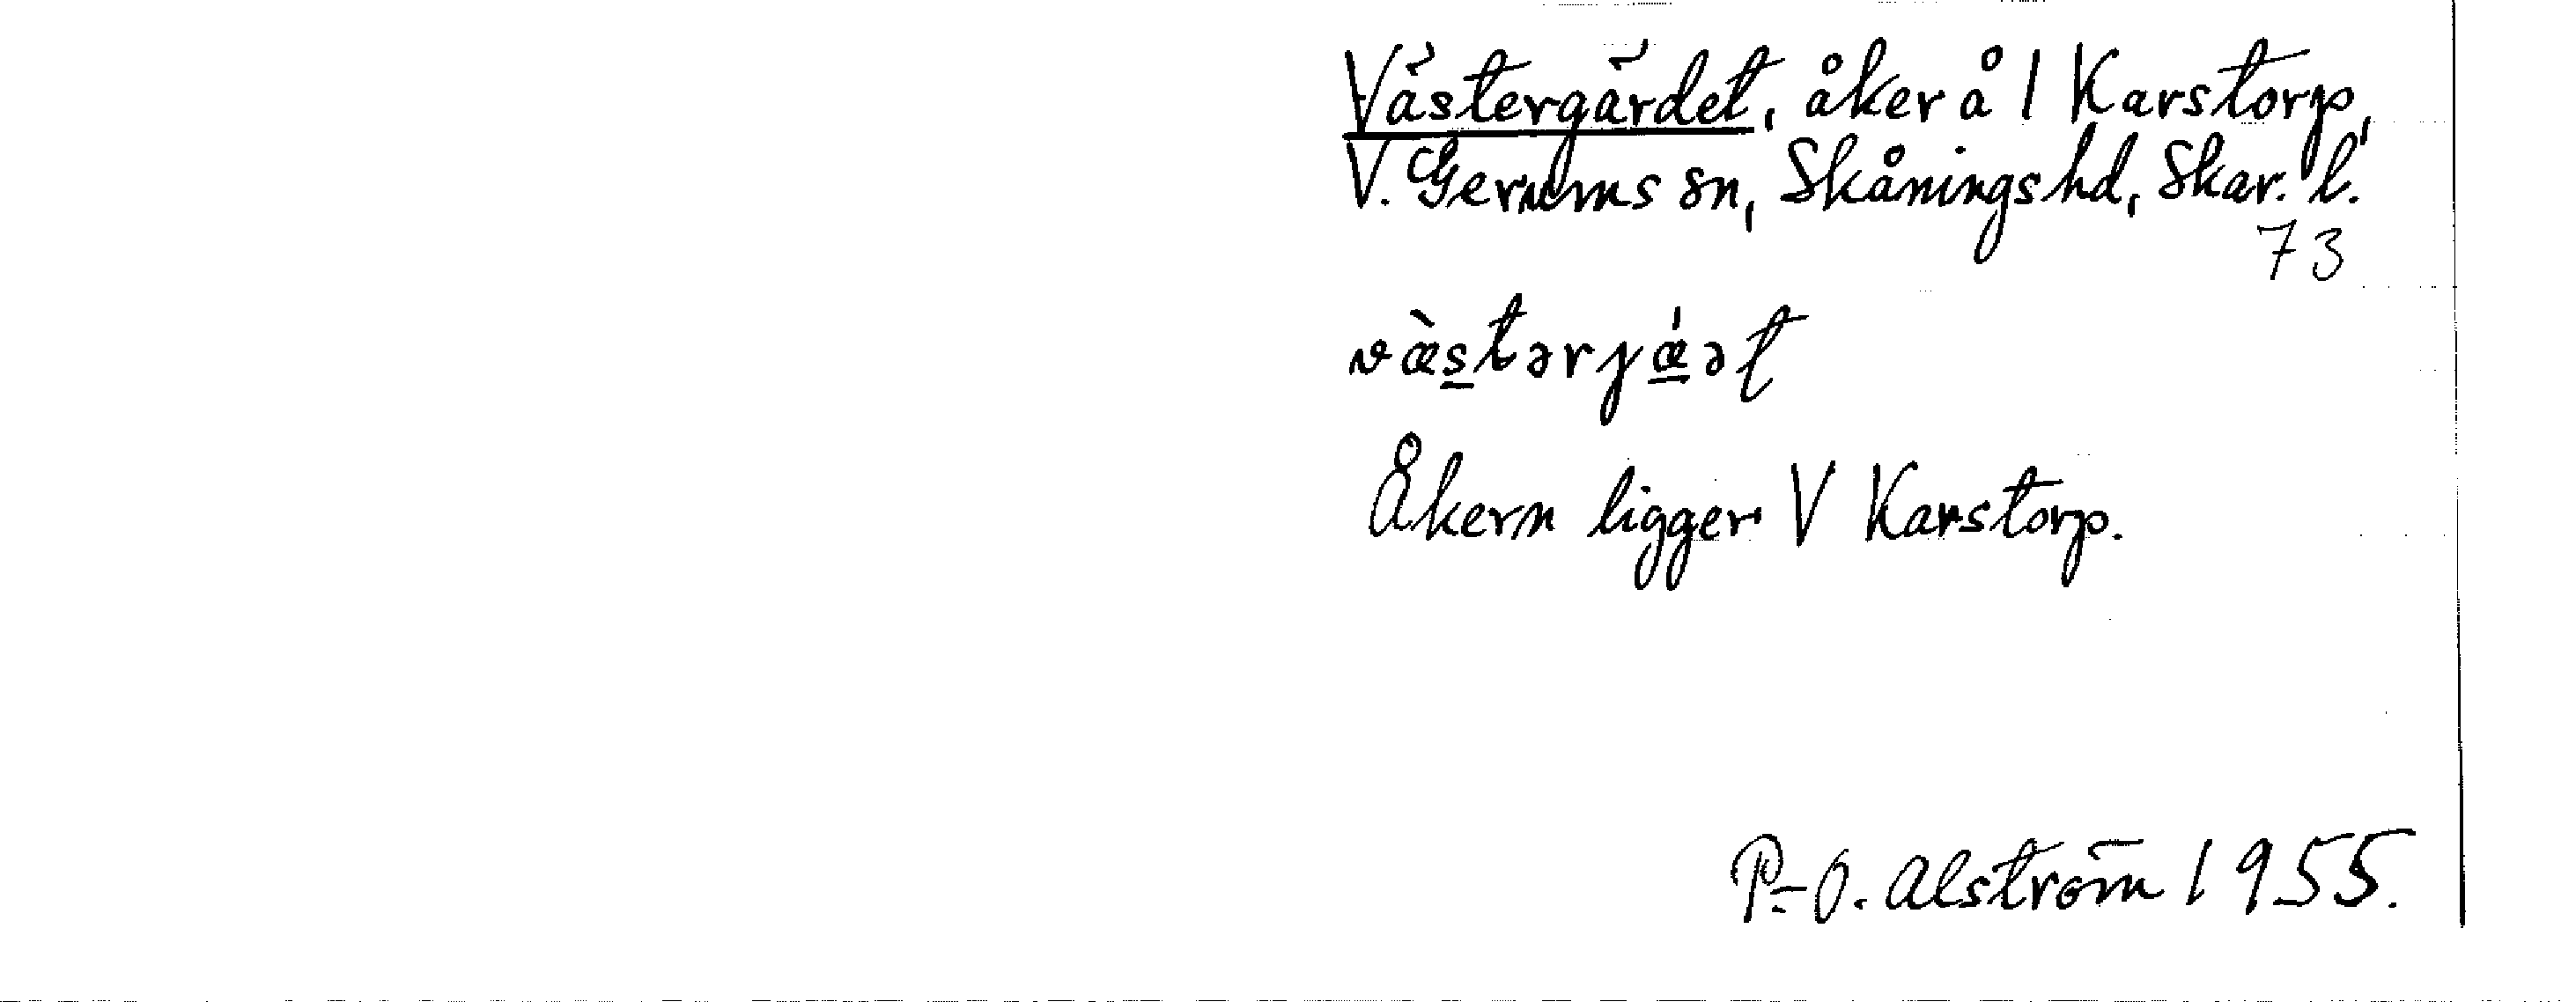 Västergärdet, åker å 1 Karstorp,
V. Gerums sn, Skånings hd, Skar. l.
73
væ̀s̲tərjǽ̲ət
Åkern ligger V Karstorp.
P.-O. Alström 1955.